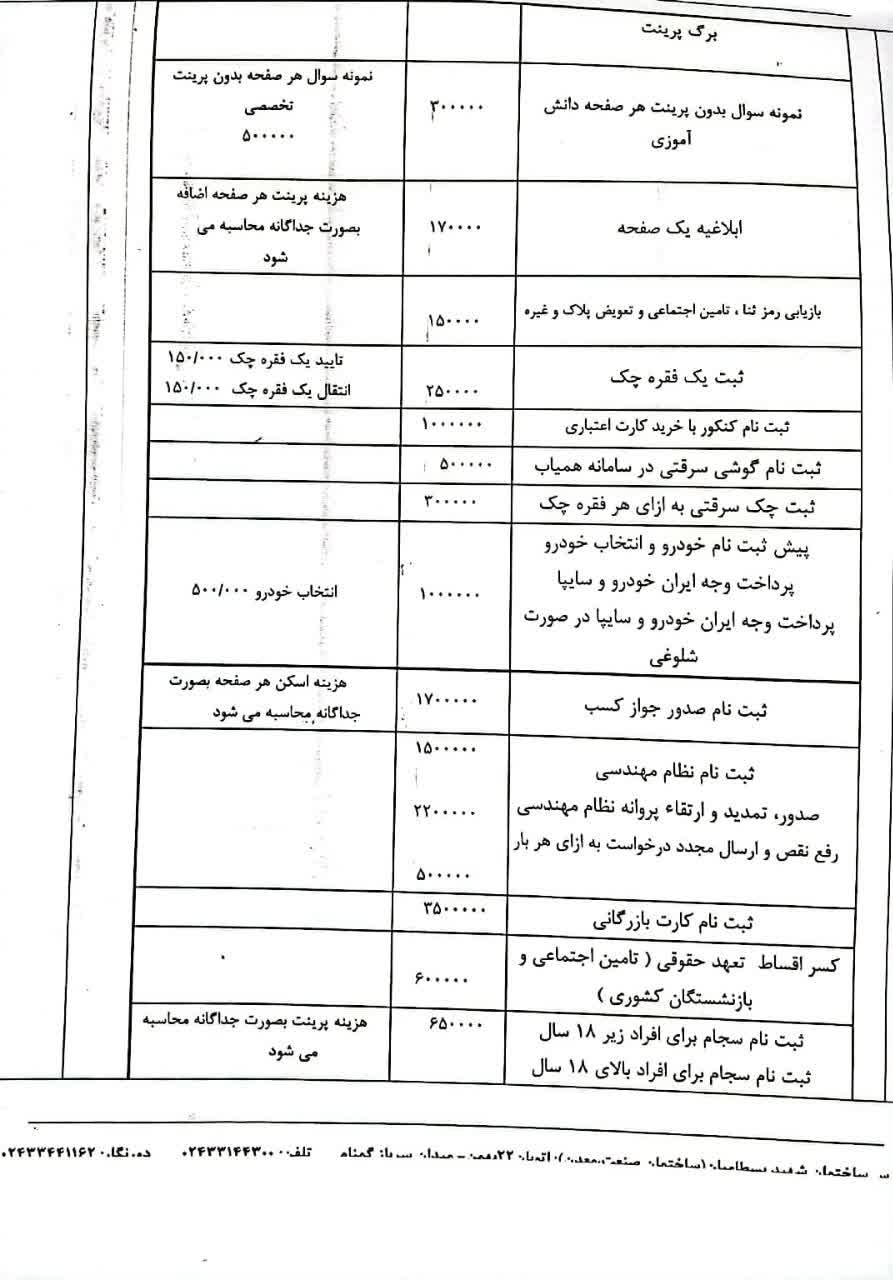 برگ پرینت
نمونه سوال بدون پرینت هر صفحه دانش
آموزی
۳۰۰۰۰۰
نمونه سوال هر صفحه بدون پرینت
تخصصی
۵۰۰۰۰۰
ابلاغیه یک صفحه
۱۷۰۰۰۰
هزینه پرینت هر صفحه اضافه
بصورت جداگانه محاسبه می
شود
بازیابی رمز ثنا ، تامین اجتماعی و تعویض پلاک و غیره
۱۵۰۰۰۰
ثبت یک فقره چک
۲۵۰۰۰۰
تایید یک فقره چک ۱۵۰/۰۰۰
انتقال یک فقره چک ۱۵۰/۰۰۰
ثبت نام کنکور با خرید کارت اعتباری
۱۰۰۰۰۰۰
ثبت نام گوشی سرقتی در سامانه همیاب
۵۰۰۰۰۰
ثبت چک سرقتی به ازای هر فقره چک
۳۰۰۰۰۰
پیش ثبت نام خودرو و انتخاب خودرو
پرداخت وجه ایران خودرو و سایپا
پرداخت وجه ایران خودرو و سایپا در صورت
شلوغی
۱۰۰۰۰۰۰
انتخاب خودرو ۵۰۰/۰۰۰
ثبت نام صدور جواز کسب
۱۷۰۰۰۰۰
هزینه اسکن هر صفحه بصورت
جداگانه محاسبه می شود
ثبت نام نظام مهندسی
صدور، تمدید و ارتقاء پروانه نظام مهندسی
رفع نقص و ارسال مجدد درخواست به ازای هر بار
۱۵۰۰۰۰۰
۲۲۰۰۰۰۰
۵۰۰۰۰۰
ثبت نام کارت بازرگانی
۳۵۰۰۰۰۰
کسر اقساط تعهد حقوقی ( تامین اجتماعی و
بازنشستگان کشوری )
۶۰۰۰۰۰
ثبت نام سجام برای افراد زیر ۱۸ سال
ثبت نام سجام برای افراد بالای ۱۸ سال
۶۵۰۰۰۰
هزینه پرینت بصورت جداگانه محاسبه
می شود
ساختمان شهید بسطامیان (ساختمان صنعت،معدن) اتوبان ۲۲بهمن - میدان سرباز گمنام تلفن ۰۲۴۳۳۱۴۴۳۰۰۰ دورنگار ۰۲۴۳۳۴۴۱۱۶۲